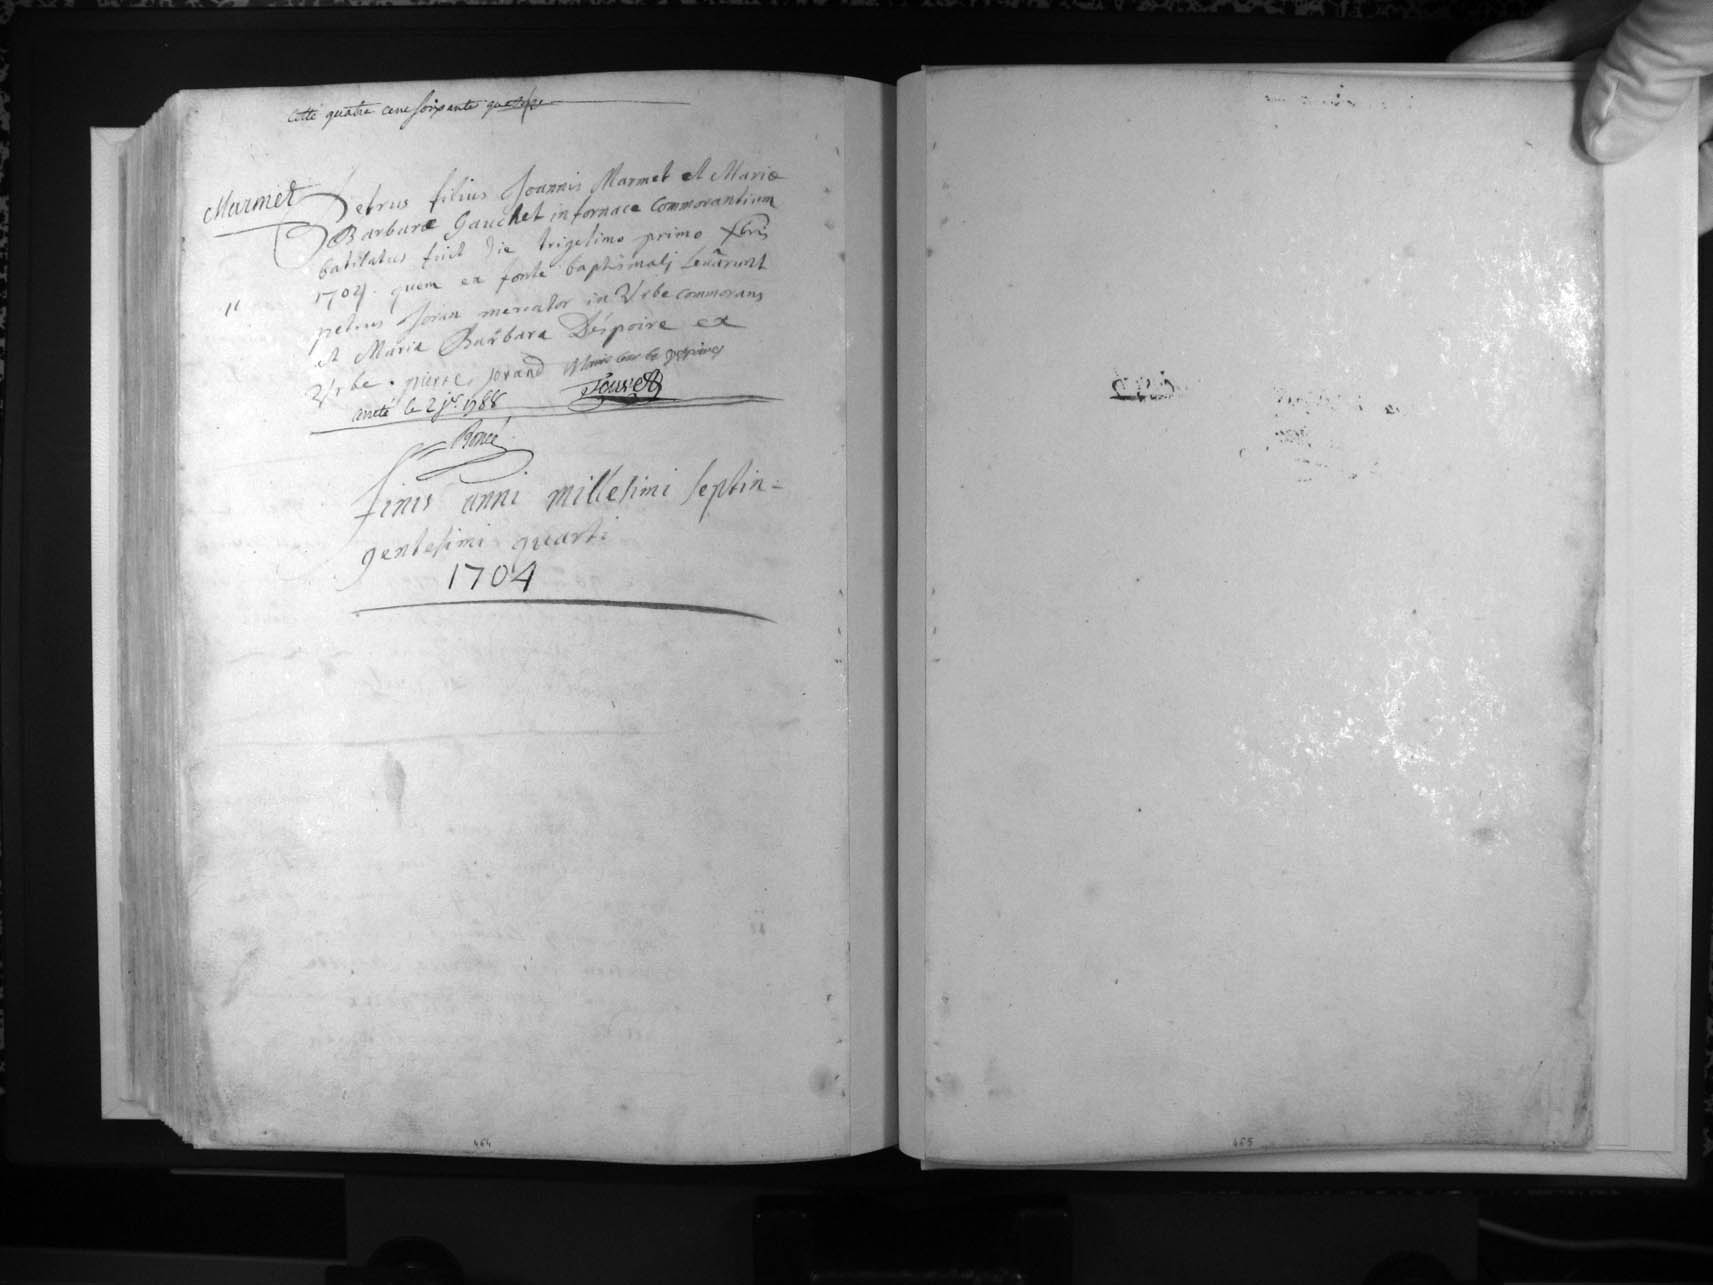 Cotté quatre cent soixante quatorze
Marmet
Petrus filius Joannis Marmet et Mariæ
Barbaræ Gauchet in fornace commorantium
batisatus fuit die trigesimo primo xbris
1704. quem ex fonte baptismali levârunt
petrus Joran mercator in Urbe commorans
et Maria Barbara Déspoire ex
Urbe. pierre jorand
arreté le 2 jer. 1788
finis anni millesimi septin=
gentesimi quarti
1704
464
465